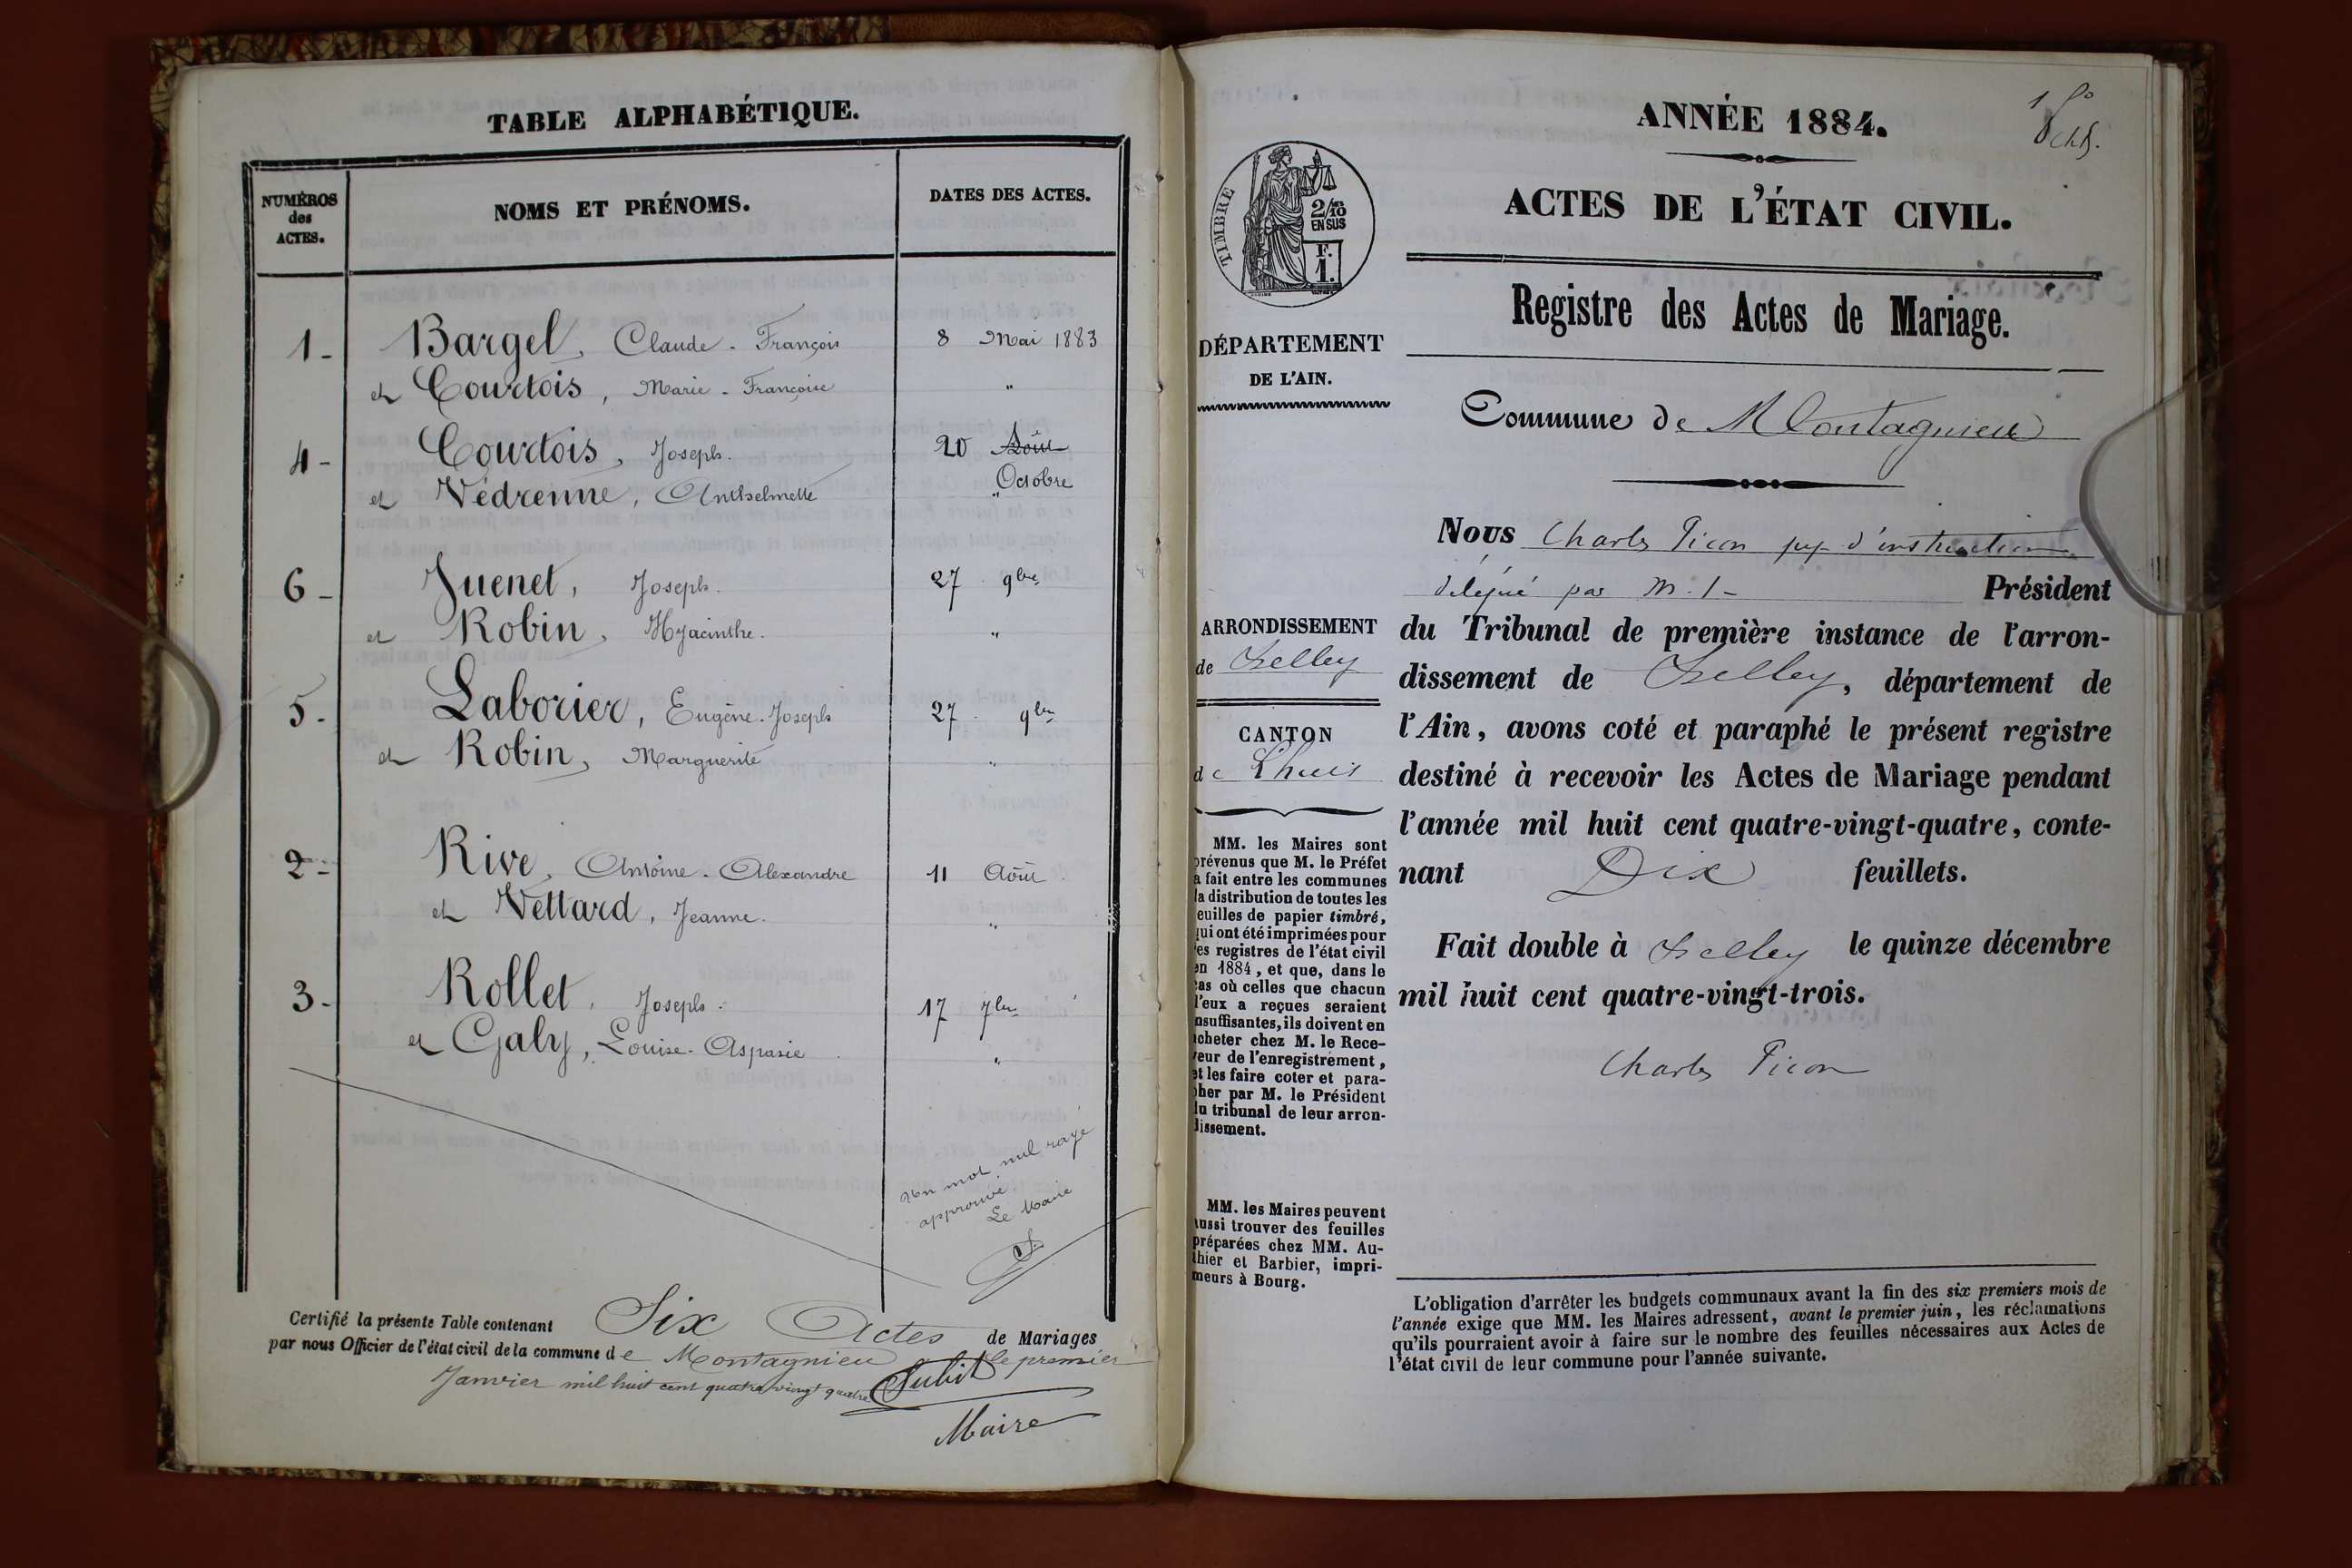 TABLE ALPHABÉTIQUE.
NUMÉROS
des
ACTES.
NOMS ET PRÉNOMS.
DATES DES ACTES.
1- Bargel, Claude-François 8 Mai 1883
et Courtois, Marie-Françoise "
4- Courtois, Joseph. 20 Août
Octobre
et Védrenne, Anthelmette "
6- Juenet, Joseph. 27 9bre
et Robin, Hyacinthe. "
5- Laborier, Eugène-Joseph 27 9bre
et Robin, Marguerite "
2- Rive, Antoine-Alexandre 11 Août
et Vettard, Jeanne. "
3- Rollet, Joseph. 17 7bre
et Galy, Louise-Aspasie "
Un mot nul rayé
approuvé.
Le Maire
Certifié la présente Table contenant Six Actes de Mariages
par nous Officier de l'état civil de la commune de Montagnieu le premier
Janvier mil huit cent quatre vingt quatre
Maire
1 fo
ANNÉE 1884.
ACTES DE L'ÉTAT CIVIL.
Registre des Actes de Mariage.
TIMBRE
2/10
EN SUS
F.
1.
DÉPARTEMENT
DE L'AIN.
Commune de Montagnieu
Nous Charles Picon juge d'instruction
délégué par M. l- Président
du Tribunal de première instance de l'arron-
dissement de Belley, département de
l'Ain, avons coté et paraphé le présent registre
destiné à recevoir les Actes de Mariage pendant
l'année mil huit cent quatre-vingt-quatre, conte-
nant Dix feuillets.
Fait double à Belley le quinze décembre
mil huit cent quatre-vingt-trois.
Charles Picon
ARRONDISSEMENT
de Belley
CANTON
de Lhuis
MM. les Maires sont
prévenus que M. le Préfet
a fait entre les communes
la distribution de toutes les
feuilles de papier timbré,
qui ont été imprimées pour
les registres de l'état civil
en 1884, et que, dans le
cas où celles que chacun
d'eux a reçues seraient
insuffisantes, ils doivent en
acheter chez M. le Rece-
veur de l'enregistrement,
et les faire coter et para-
pher par M. le Président
du tribunal de leur arron-
dissement.
MM. les Maires peuvent
aussi trouver des feuilles
préparées chez MM. Au-
thier et Barbier, impri-
meurs à Bourg.
L'obligation d'arrêter les budgets communaux avant la fin des six premiers mois de
l'année exige que MM. les Maires adressent, avant le premier juin, les réclamations
qu'ils pourraient avoir à faire sur le nombre des feuilles nécessaires aux Actes de
l'état civil de leur commune pour l'année suivante.